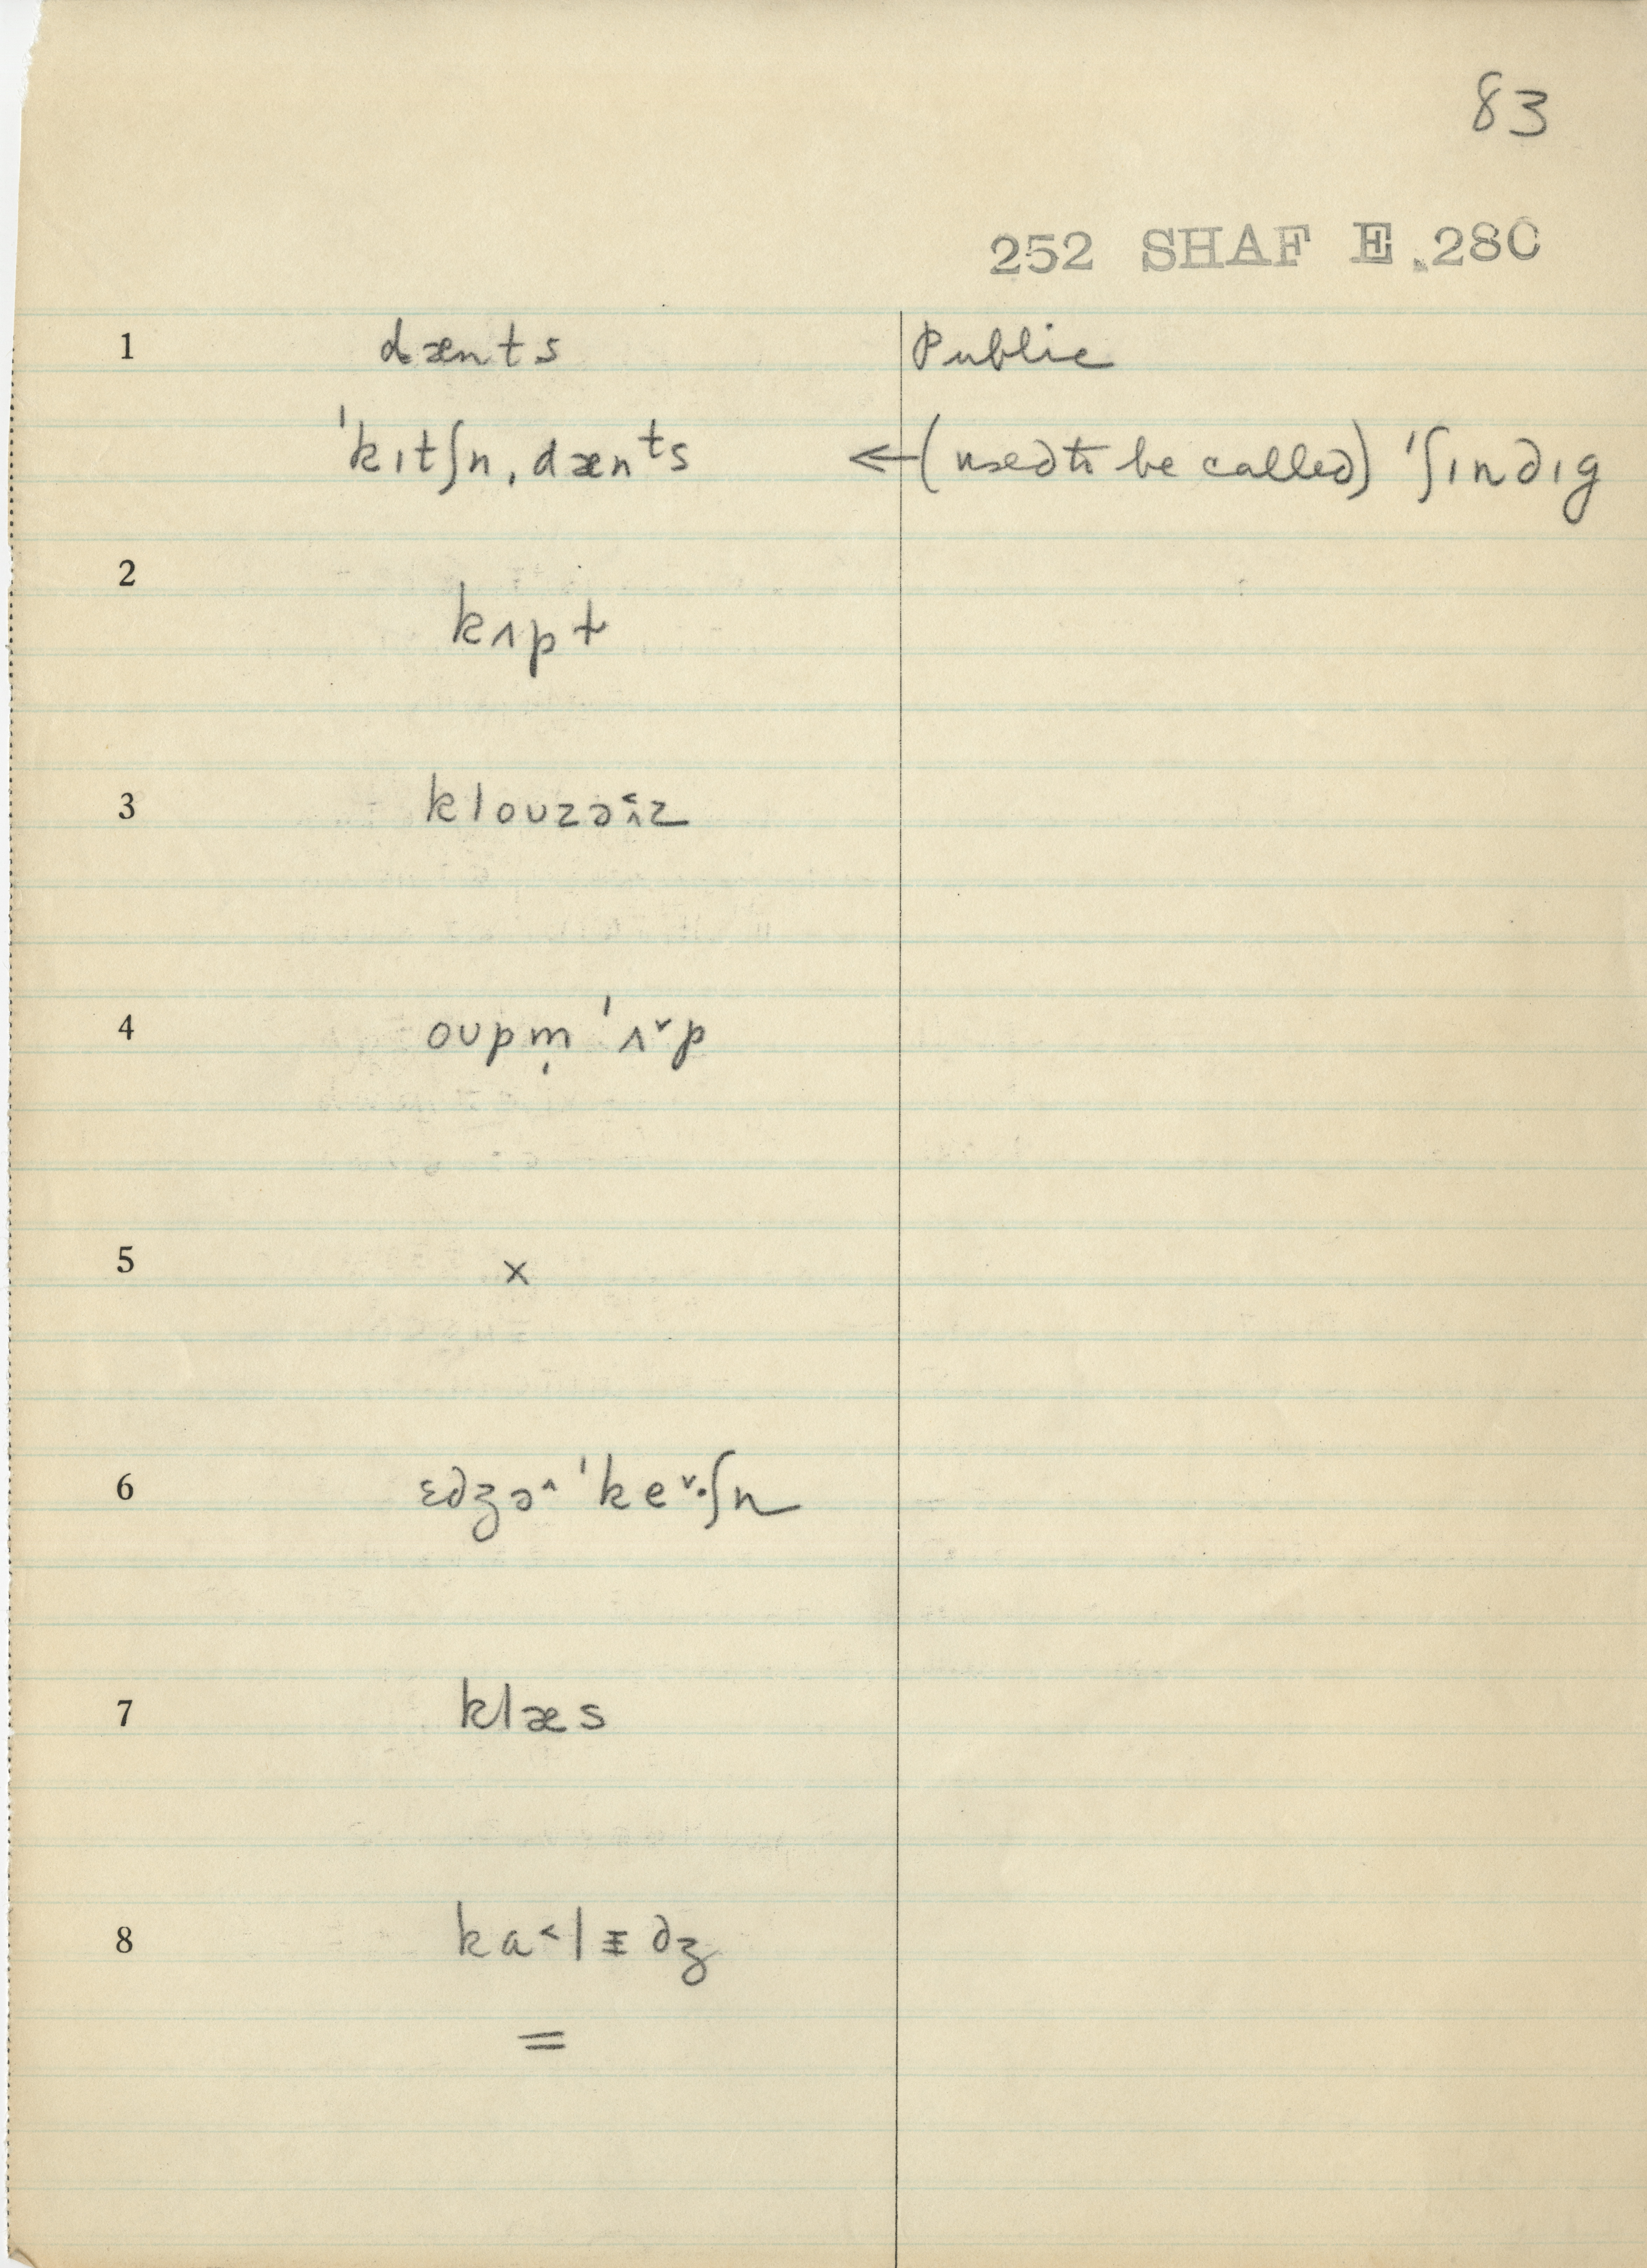 83
252 SHAF E.280
1 dænts Public
ˈkɪtʃn̩ˌdænts ←(used to be called) ˈʃɪndɪg
2 kʌpt
3 klouzəʌ˂z
4 oupm̩ ˈʌ˅p
5 ×
6 ɛdʒə˄ ˈke˅·ʃn
7 klæs
8 ka˂lɪdʒ
=